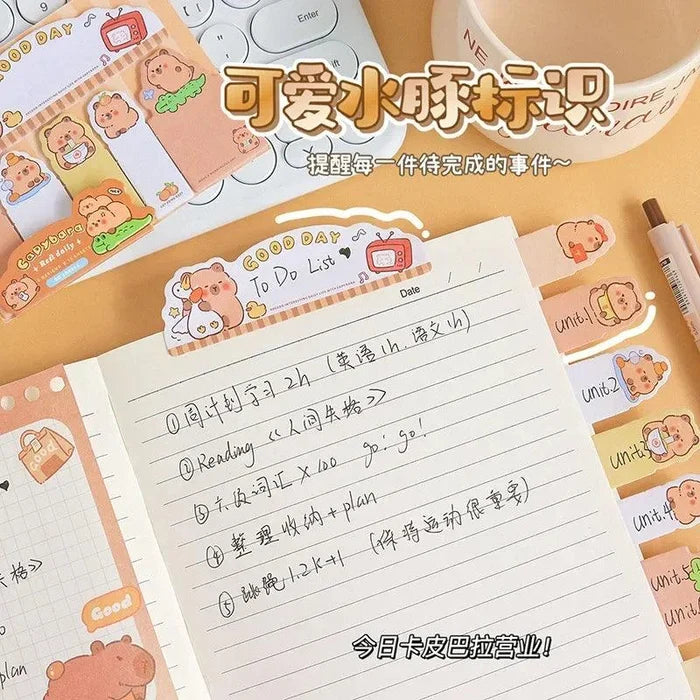 GOOD DAY
Enter
Shift
可爱水豚标识
提醒每一件待完成的事件~
Capybara
GOOD DAY
To Do List
Date / /
①周计划学习2h (英语1h, 语文1h)
②Reading 《人间失格》
③六级词汇×100 go! go!
④整理收纳+plan
⑤跳绳1.2k+1 (保持运动很重要)
unit.1
unit.2
unit.3
unit.4
unit.5
unit
Good
格》
plan
Good
今日卡皮巴拉营业!